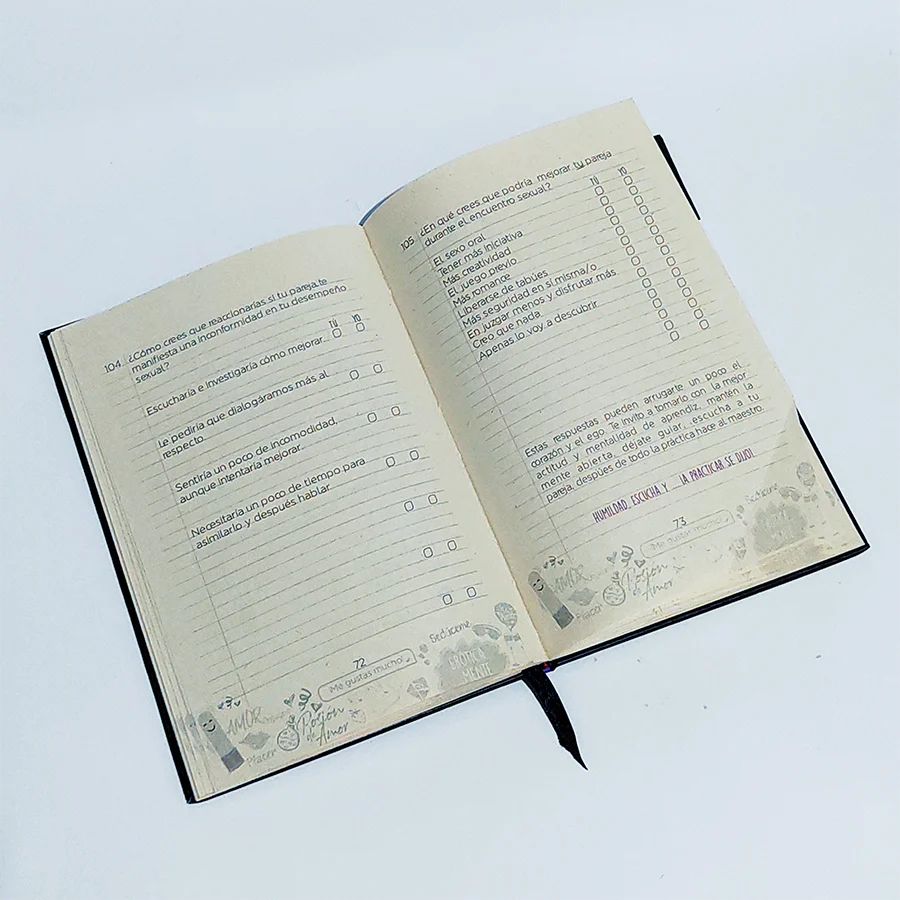 104. ¿Cómo crees que reaccionarías si tu pareja te
manifiesta una inconformidad en tu desempeño
sexual?
TÚ YO
Escucharía e investigaría cómo mejorar...
Le pediría que dialogáramos más al
respecto.
Sentiría un poco de incomodidad,
aunque intentaría mejorar...
Necesitaría un poco de tiempo para
asimilarlo y después hablar...
72
¡Me gustas mucho!
Sedúceme
EROTICA
MENTE
AMOR
Poción
de Amor
Placer
105. ¿En qué crees que podría mejorar tu pareja
durante el encuentro sexual?
TÚ YO
El sexo oral
Tener más iniciativa
Más creatividad
El juego previo
Más romance
Liberarse de tabúes
Más seguridad en sí misma/o
En juzgar menos y disfrutar más
Creo que nada
Apenas lo voy a descubrir
Estas respuestas pueden arrugarte un poco el
corazón y el ego. Te invito a tomarlo con la mejor
actitud y mentalidad de aprendiz, mantén la
mente abierta, déjate guiar, escucha a tu
pareja, después de todo la práctica hace al maestro.
HUMILDAD, ESCUCHA Y A PRACTICAR SE DIJO!
73
¡Me gustas mucho!
Sedúceme
AMOR
Poción
de Amor
Placer